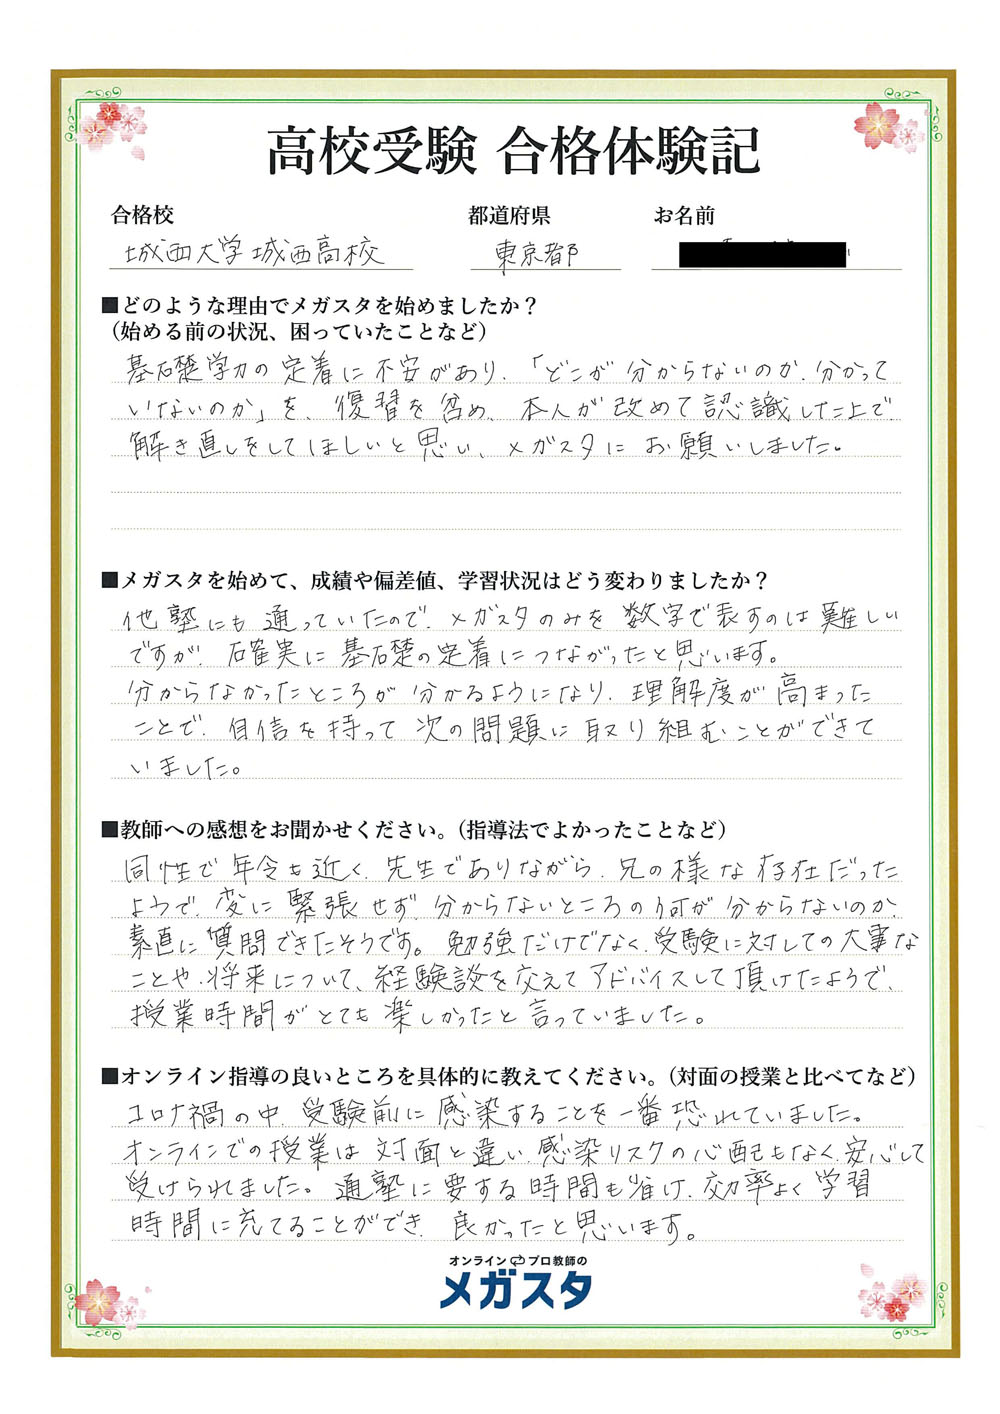 高校受験 合格体験記
合格校 都道府県 お名前
城西大学城西高校 東京都
■どのような理由でメガスタを始めましたか？
（始める前の状況、困っていたことなど）
基礎学力の定着に不安があり、「どこが分からないのか、分かって
いないのか」を、復習を含め、本人が改めて認識した上で、
解き直しをしてほしいと思い、メガスタにお願いしました。
■メガスタを始めて、成績や偏差値、学習状況はどう変わりましたか？
他塾にも通っていたので、メガスタのみを数字で表すのは難しい
ですが、確実に基礎の定着につながったと思います。
分からなかったところが分かるようになり、理解度が高まった
ことで、自信を持って次の問題に取り組むことができて
いました。
■教師への感想をお聞かせください。（指導法でよかったことなど）
同性で年令も近く、先生でありながら、兄の様な存在だった
ようで、変に緊張せず、分からないところの何が分からないのか、
素直に質問できたそうです。勉強だけでなく、受験に対しての大事な
ことや、将来について、経験談を交えてアドバイスして頂けたようで、
授業時間がとても楽しかったと言っていました。
■オンライン指導の良いところを具体的に教えてください。（対面の授業と比べてなど）
コロナ禍の中、受験前に感染することを一番恐れていました。
オンラインでの授業は対面と違い、感染リスクの心配もなく、安心して
受けられました。通塾に要する時間も省け、効率よく学習
時間に充てることができ、良かったと思います。
オンライン プロ教師の
メガスタ